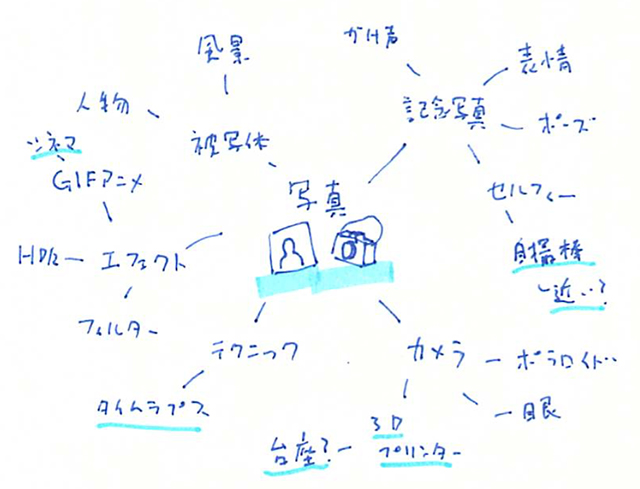 風景
かけ声
表情
人物
記念写真
ポーズ
シネマ
被写体
GIFアニメ
写真
セルフィー
HDR
エフェクト
自撮棒
近い?
フィルター
テクニック
カメラ
ポラロイド
タイムラプス
一眼
3D
プリンター
台座?